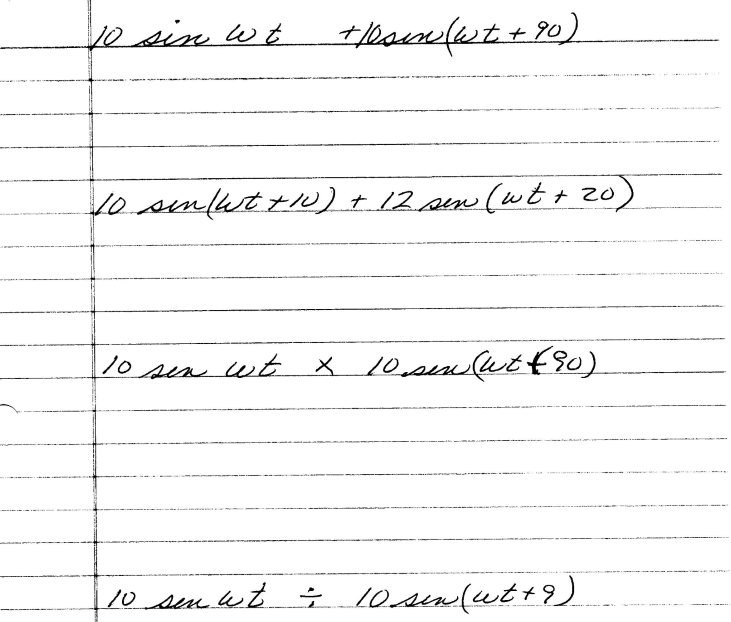 10 sin wt + 10 sin(wt + 90)
10 sin(wt + 10) + 12 sin(wt + 20)
10 sin wt × 10 sin(wt + 90)
10 sin wt ÷ 10 sin(wt + 9)